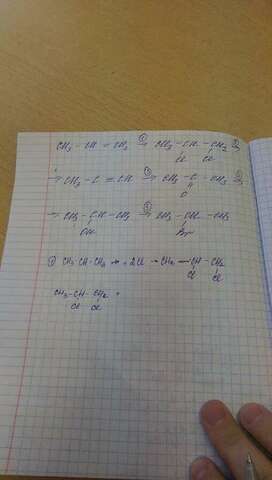 CH₃ - CH = CH₂ →① CH₃ - CH - CH₂ →②
Cl Cl
→ CH₃ - C ≡ CH →③ CH₃ - C - CH₃ →④
O
→ CH₃ - CH - CH₃ →⑤ CH₃ - CH - CH₃
OH Br
① CH₃ CH - CH₂ + 2Cl → CH₃ - CH - CH₂
Cl Cl
CH₃ - CH - CH₂ +
Cl Cl